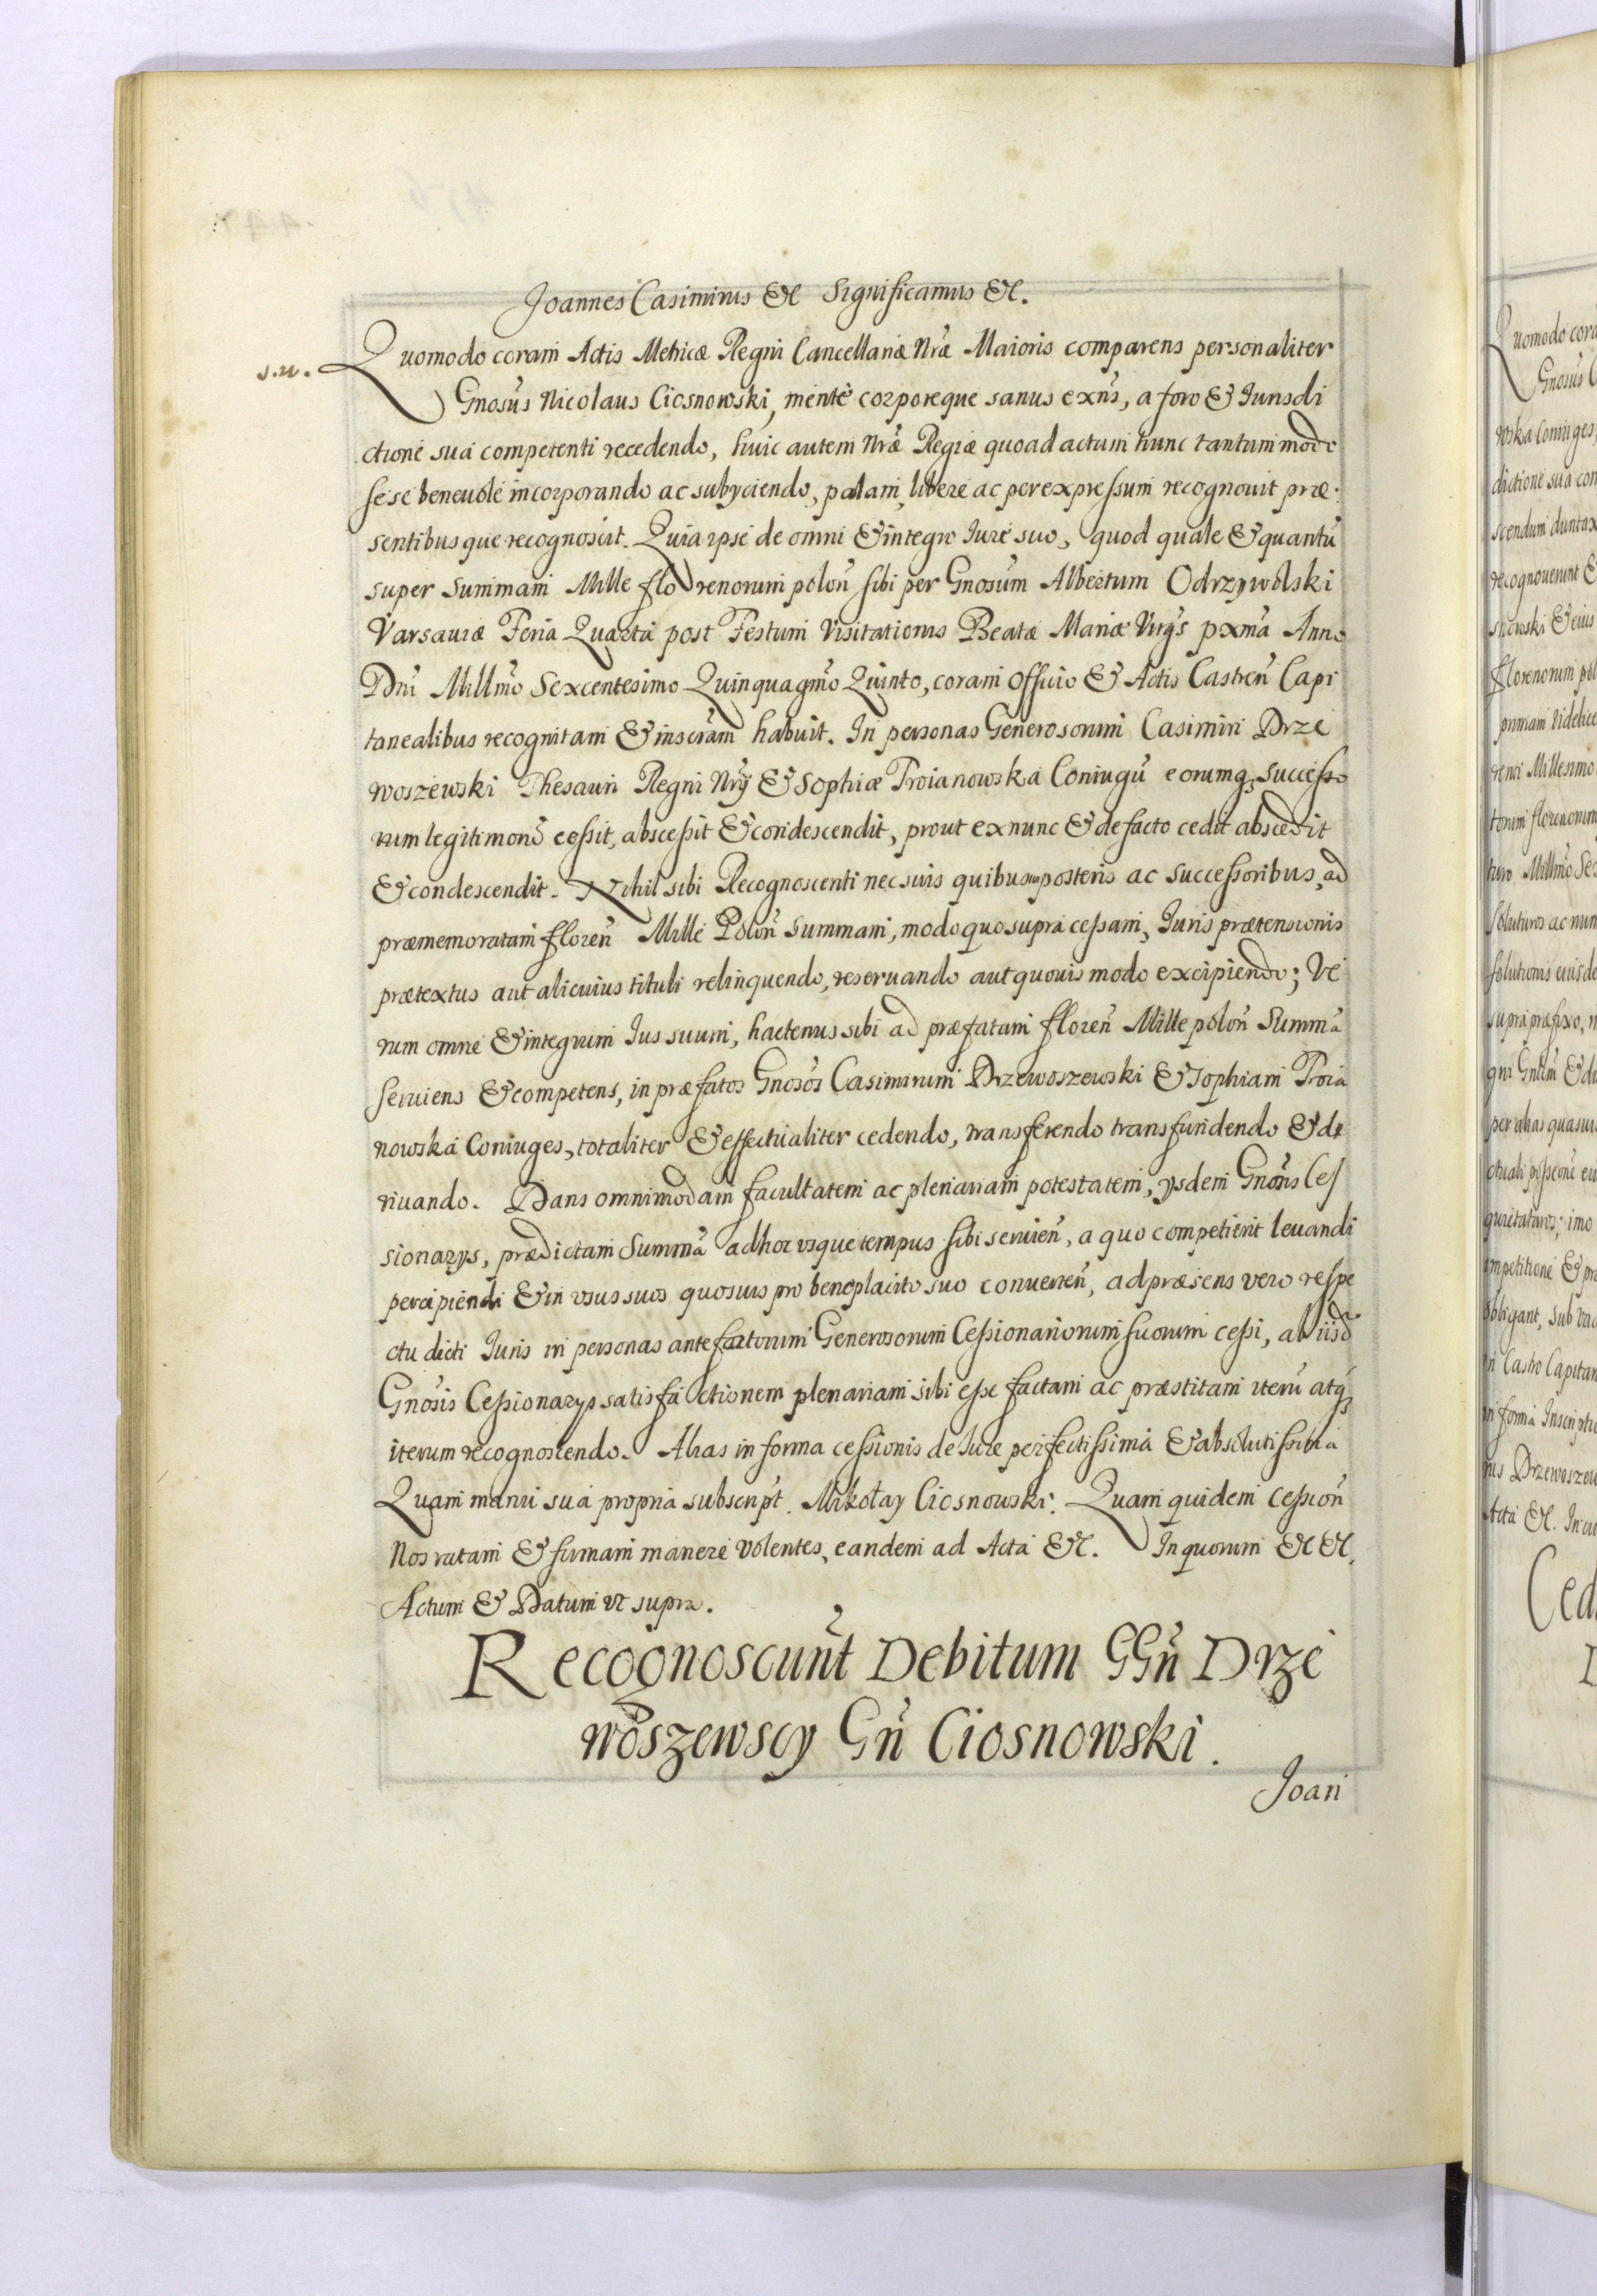 Joannes Casimirus &c Significamus &c.
s.n. Quomodo coram Actis Metricæ Regni Cancellariæ Nræ Maioris comparens personaliter
Gnosus Nicolaus Ciosnowski, mente corporeque sanus exns, a foro & Iurisdi
ctione sua competenti recedendo, huic autem Nræ Regiæ quoad actum hunc tantummodo
sese beneuole incorporando ac subyciendo, palam, libere ac per expressum recognouit præ-
sentibusque recognoscit. Quia ipse de omni & integro Iure suo, quod quale & quantũ
super Summam Mille florenorum poloñ sibi per Gnosum Albertum Odrzywolski
Varsauiæ Feria Quarta post Festum Visitationis Beatæ Mariæ Virgs pxma Anno
Dni Millmo Sexcentesimo Quinquagmo Quinto, coram Officio & Actis Castreñ Capi
tanealibus recognitam & inscram habuit. In personas Generosorum Casimiri Drze
woszewski Thesauri Regni Nrj & Sophiæ Troianowska Coniugũ eorumq, Successo
rum legitimorũ cessit, abscessit & condescendit, prout ex nunc & de facto cedit abscedit
& condescendit. Nihil sibi Recognoscenti nec suis quibusuis posteris ac successoribus, ad
præmemoratam floreñ Mille Poloñ Summam, modo quo supra cessam, Iuris prætensionis
prætextus aut alicuius tituli relinquendo, reseruando aut quouis modo excipiendo; Ve
rum omne & integrum Ius suum, hactenus sibi ad præfatam floreñ Mille poloñ Summã
seruiens & competens, in præfatos Gnosos Casimirum Drzewoszewski & Sophiam Troia
nowska Coniuges, totaliter & effectualiter cedendo, transferendo transfundendo & de
riuando. Dans omnimodam facultatem ac plenariam potestatem, ysdem Gnosis Ces
sionarys, prædictam Summã adhoc vsque tempus sibi seruieñ, a quo competierit leuandi
percipiendi & in vsus suos quosuis pro beneplacito suo conuerteñ, ad præsens vero respe
ctu dicti Iuris in personas antefactorum Generosorum Cessionariorum suorum cessi, ab iisd
Gnosis Cessionarys satisfactionem plenariam sibi esse factam ac præstitam iterũ atq
iterum recognoscendo. Alias in forma cessionis de Iure perfectissima & absolutissima
Quam manu sua propria subscript. Mikołay Ciosnowski. Quam quidem Cessioñ
Nos ratam & firmam manere volentes, eandem ad Acta &c. In quorum &c &c.
Actum & Datum vt supra.
Recognoscunt Debitum GGñ Drze
woszewscy Gñ Ciosnowski.
Joan